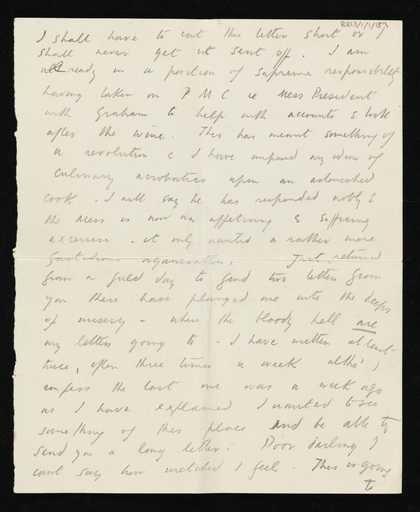 I shall have to cut this letter short or I
shall never get it sent off. I am
already in a position of supreme responsibility
having taken on P.M.C ie Mess President
with Graham to help with accounts & look
after the wine. This has meant something of
a revolution & I have imposed my ideas of
culinary acrobatics upon an astonished
cook. I will say he has responded nobly &
the mess is now an appetising &
. It only wanted a rather more
organisation. Just returned
from a field day to find two letters from
you these have plunged me into the depths
of misery - where the bloody hell are
my letters going to - I have written at least
twice, often three times a week altho' I
confess the last one was a week ago
as I have explained I wanted to see
something of this place and be able to
send you a long letter. Poor darling I
cant say how wretched I feel. This is going
to